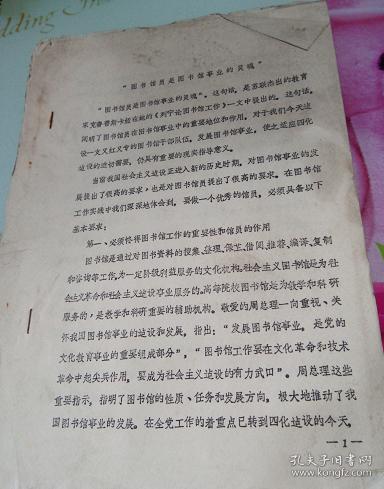 “图书馆员是图书馆事业的灵魂”
“图书馆员是图书馆事业的灵魂”。这句话，是苏联杰出的教育
家克鲁普斯卡娅在她的《列宁论图书馆工作》一文中提出的。这句话，
阐明了图书馆员在图书馆事业中的重要地位和作用。对于我们今天建
设一支又红又专的图书馆干部队伍，发展图书馆事业，使之适应四化
建设的迫切需要，仍具有重要的现实指导意义。
当前我国社会主义建设正进入新的历史时期，对图书馆事业的发
展提出了很高的要求，也是对图书馆员提出了很高的要求。在图书馆
工作实践中我们深深地体会到，要做一个优秀的馆员，必须具备以下
基本要求：
第一、必须懂得图书馆工作的重要性和馆员的作用
图书馆是通过对图书资料的搜集、整理、保管、借阅、推荐、编译、复制
和咨询等工作，为一定阶级利益服务的文化机构。社会主义图书馆是为社
会主义革命和社会主义建设事业服务的。高等院校图书馆是为教学和科研
服务的，是教学和科研重要的辅助机构。敬爱的周总理一向重视、关
怀我国图书馆事业的建设和发展，指出：“发展图书馆事业，是党的
文化教育事业的重要组成部分”，“图书馆工作要在文化革命和技术
革命中起尖兵作用，要成为社会主义建设的有力武口”。周总理这些
重要指示，指明了图书馆的性质、任务和发展方向，极大地推动了我
国图书馆事业的发展。在全党工作的着重点已转到四化建设的今天，
—1—
孔夫子旧书网